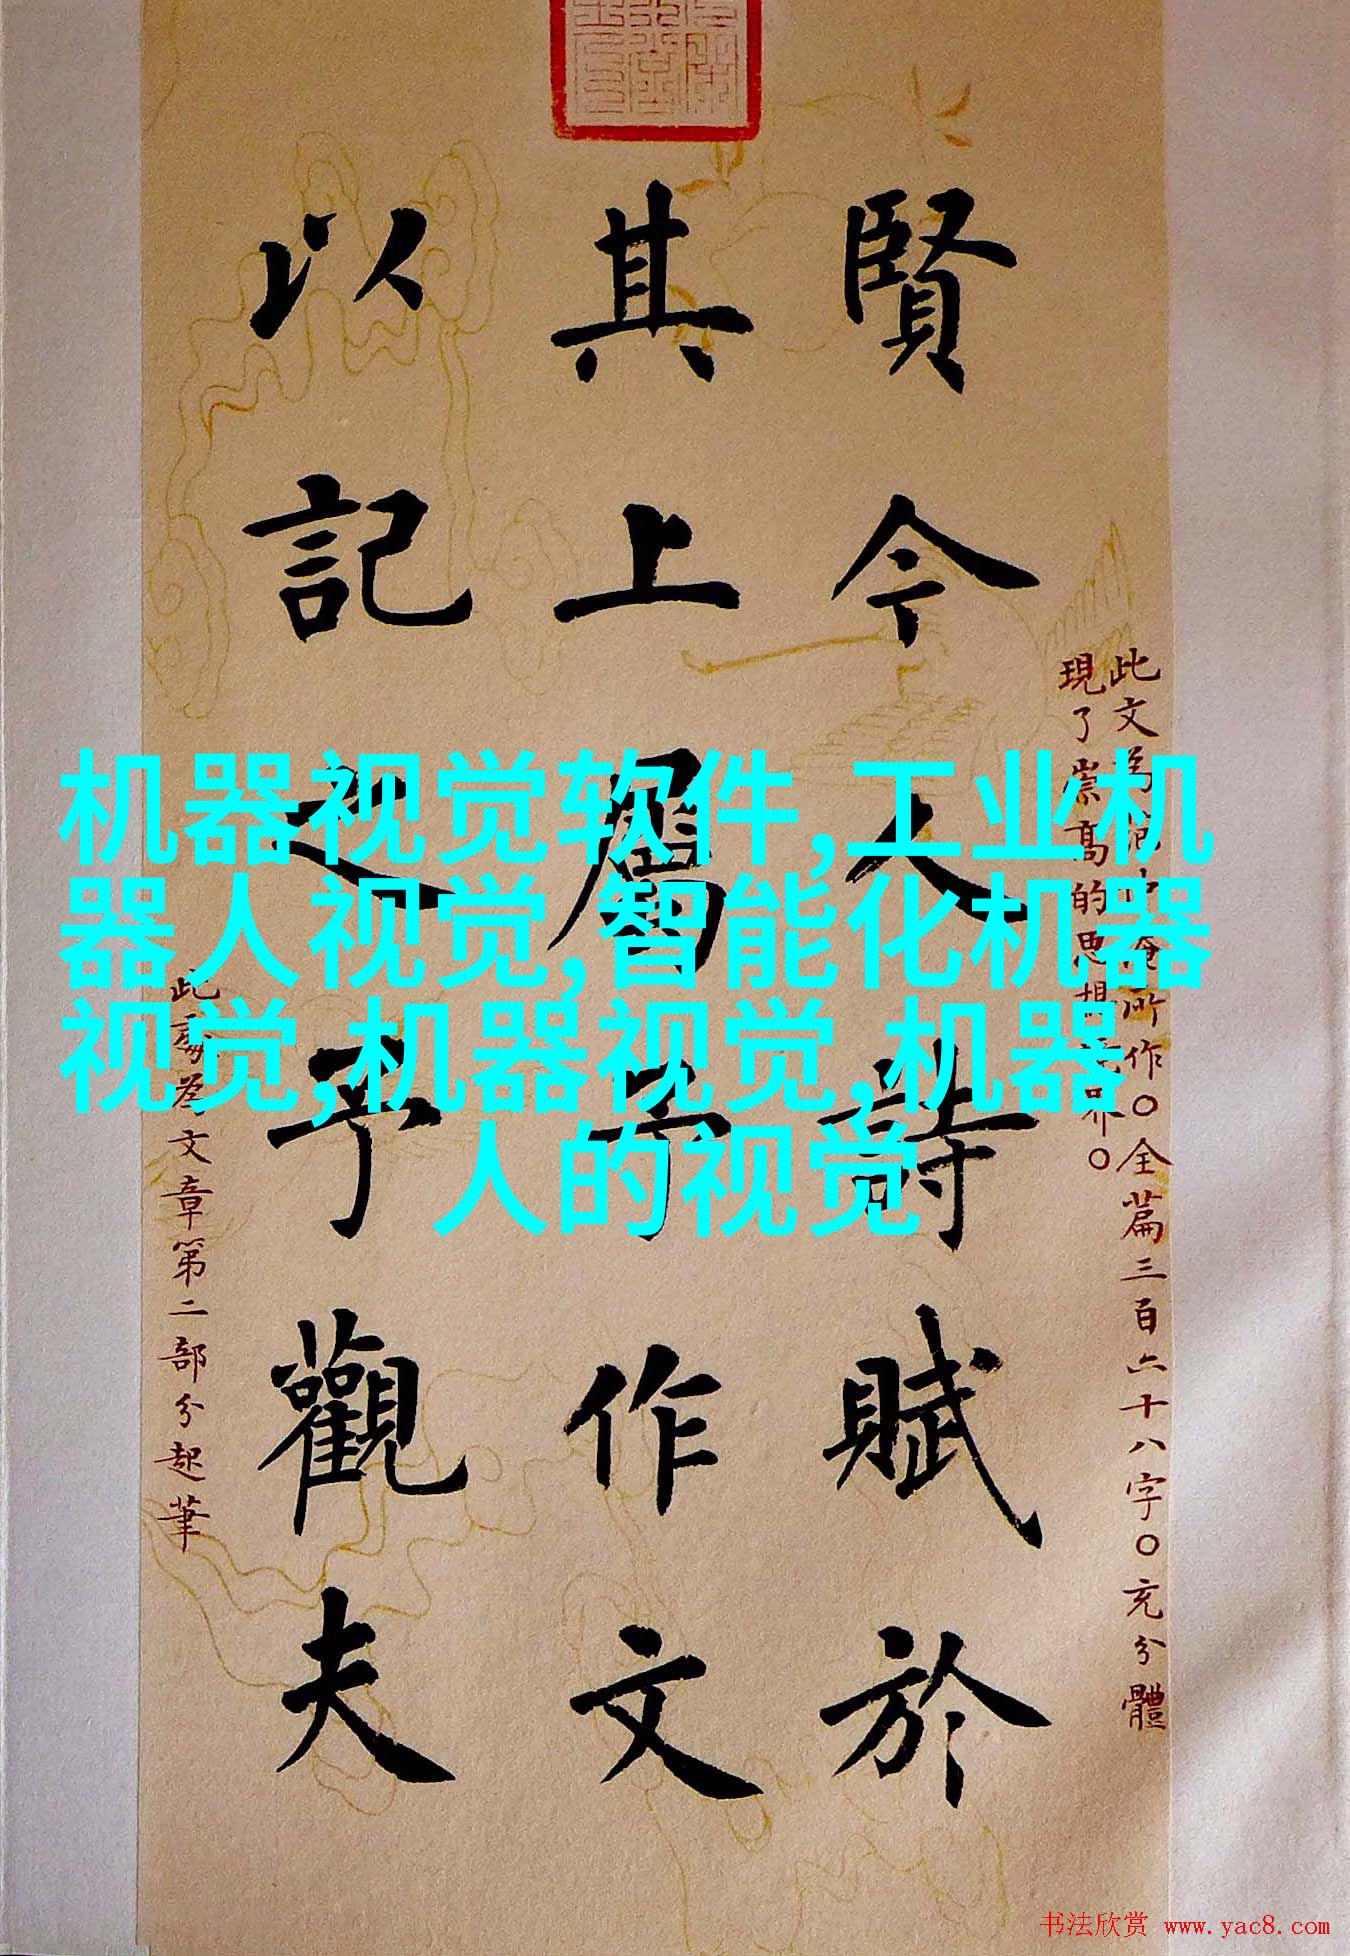 賢今人詩賦於
其上屬予作文
以記之予觀夫
此文為范仲淹所作○全篇三百六十八字○充分體
現了崇高的思想境界○
此處為文章第二部分起筆
机器视觉软件,工业机
器人视觉,智能化机器
视觉,机器视觉,机器
人的视觉
书法欣赏 www.yac8.com